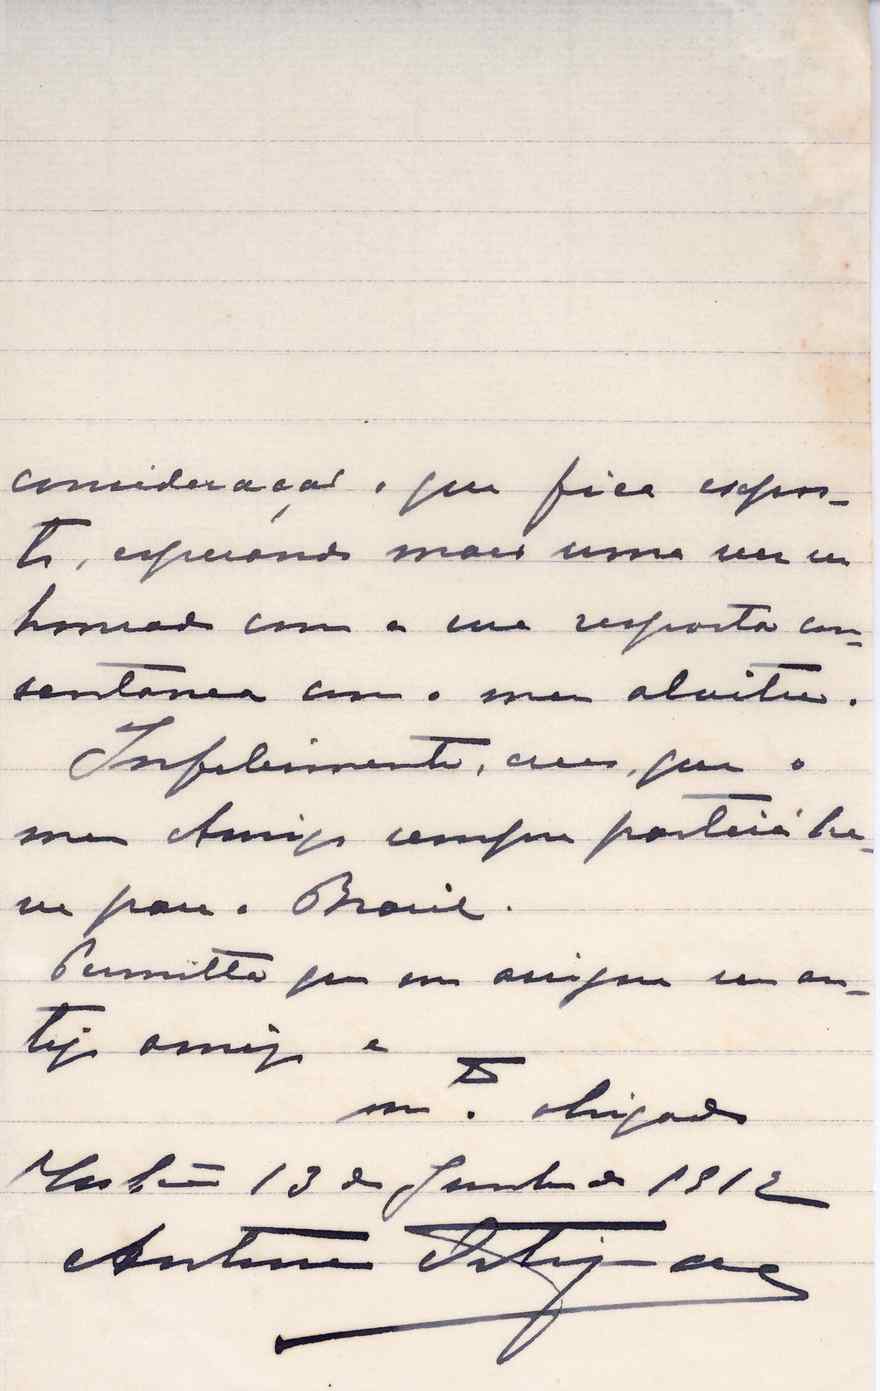 consideração o que fica expos-
to, esperando mais uma vez ser
honrado com a sua resposta con-
sentanea com o meu alvitre.
Infelizmente, creio, que o
meu Amigo sempre partirá bre-
ve para o Brasil.
Permitta que me assigne seu an-
tigo amigo e
m.to obrigado
13 de Junho de 1912
Antonio